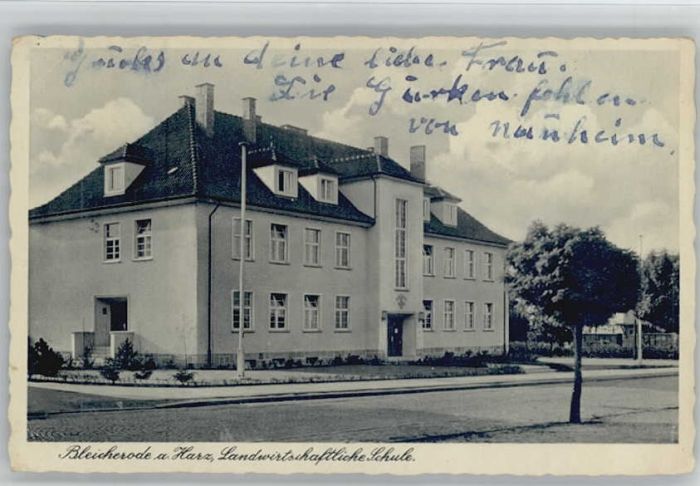 Grüß an deine liebe Frau.
Die Gurken fehlen
von Nauheim,
Bleicherode a. Harz, Landwirtschaftliche Schule.